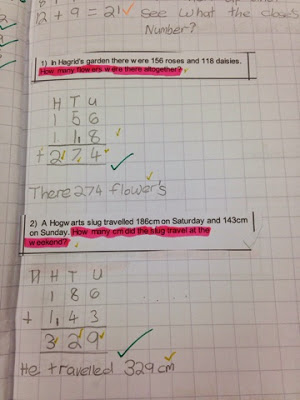 12 + 9 = 21 see what the closes
Number?
1) In Hagrid's garden there were 156 roses and 118 daisies.
How many flowers were there altogether?
H T U
1 5 6
1 1 8
+ 2 7 4
There 274 flower's
2) A Hogwarts slug travelled 186cm on Saturday and 143cm
on Sunday. How many cm did the slug travel at the
weekend?
H T U
1 8 6
+ 1 4 3
3 2 9
He travelled 329cm